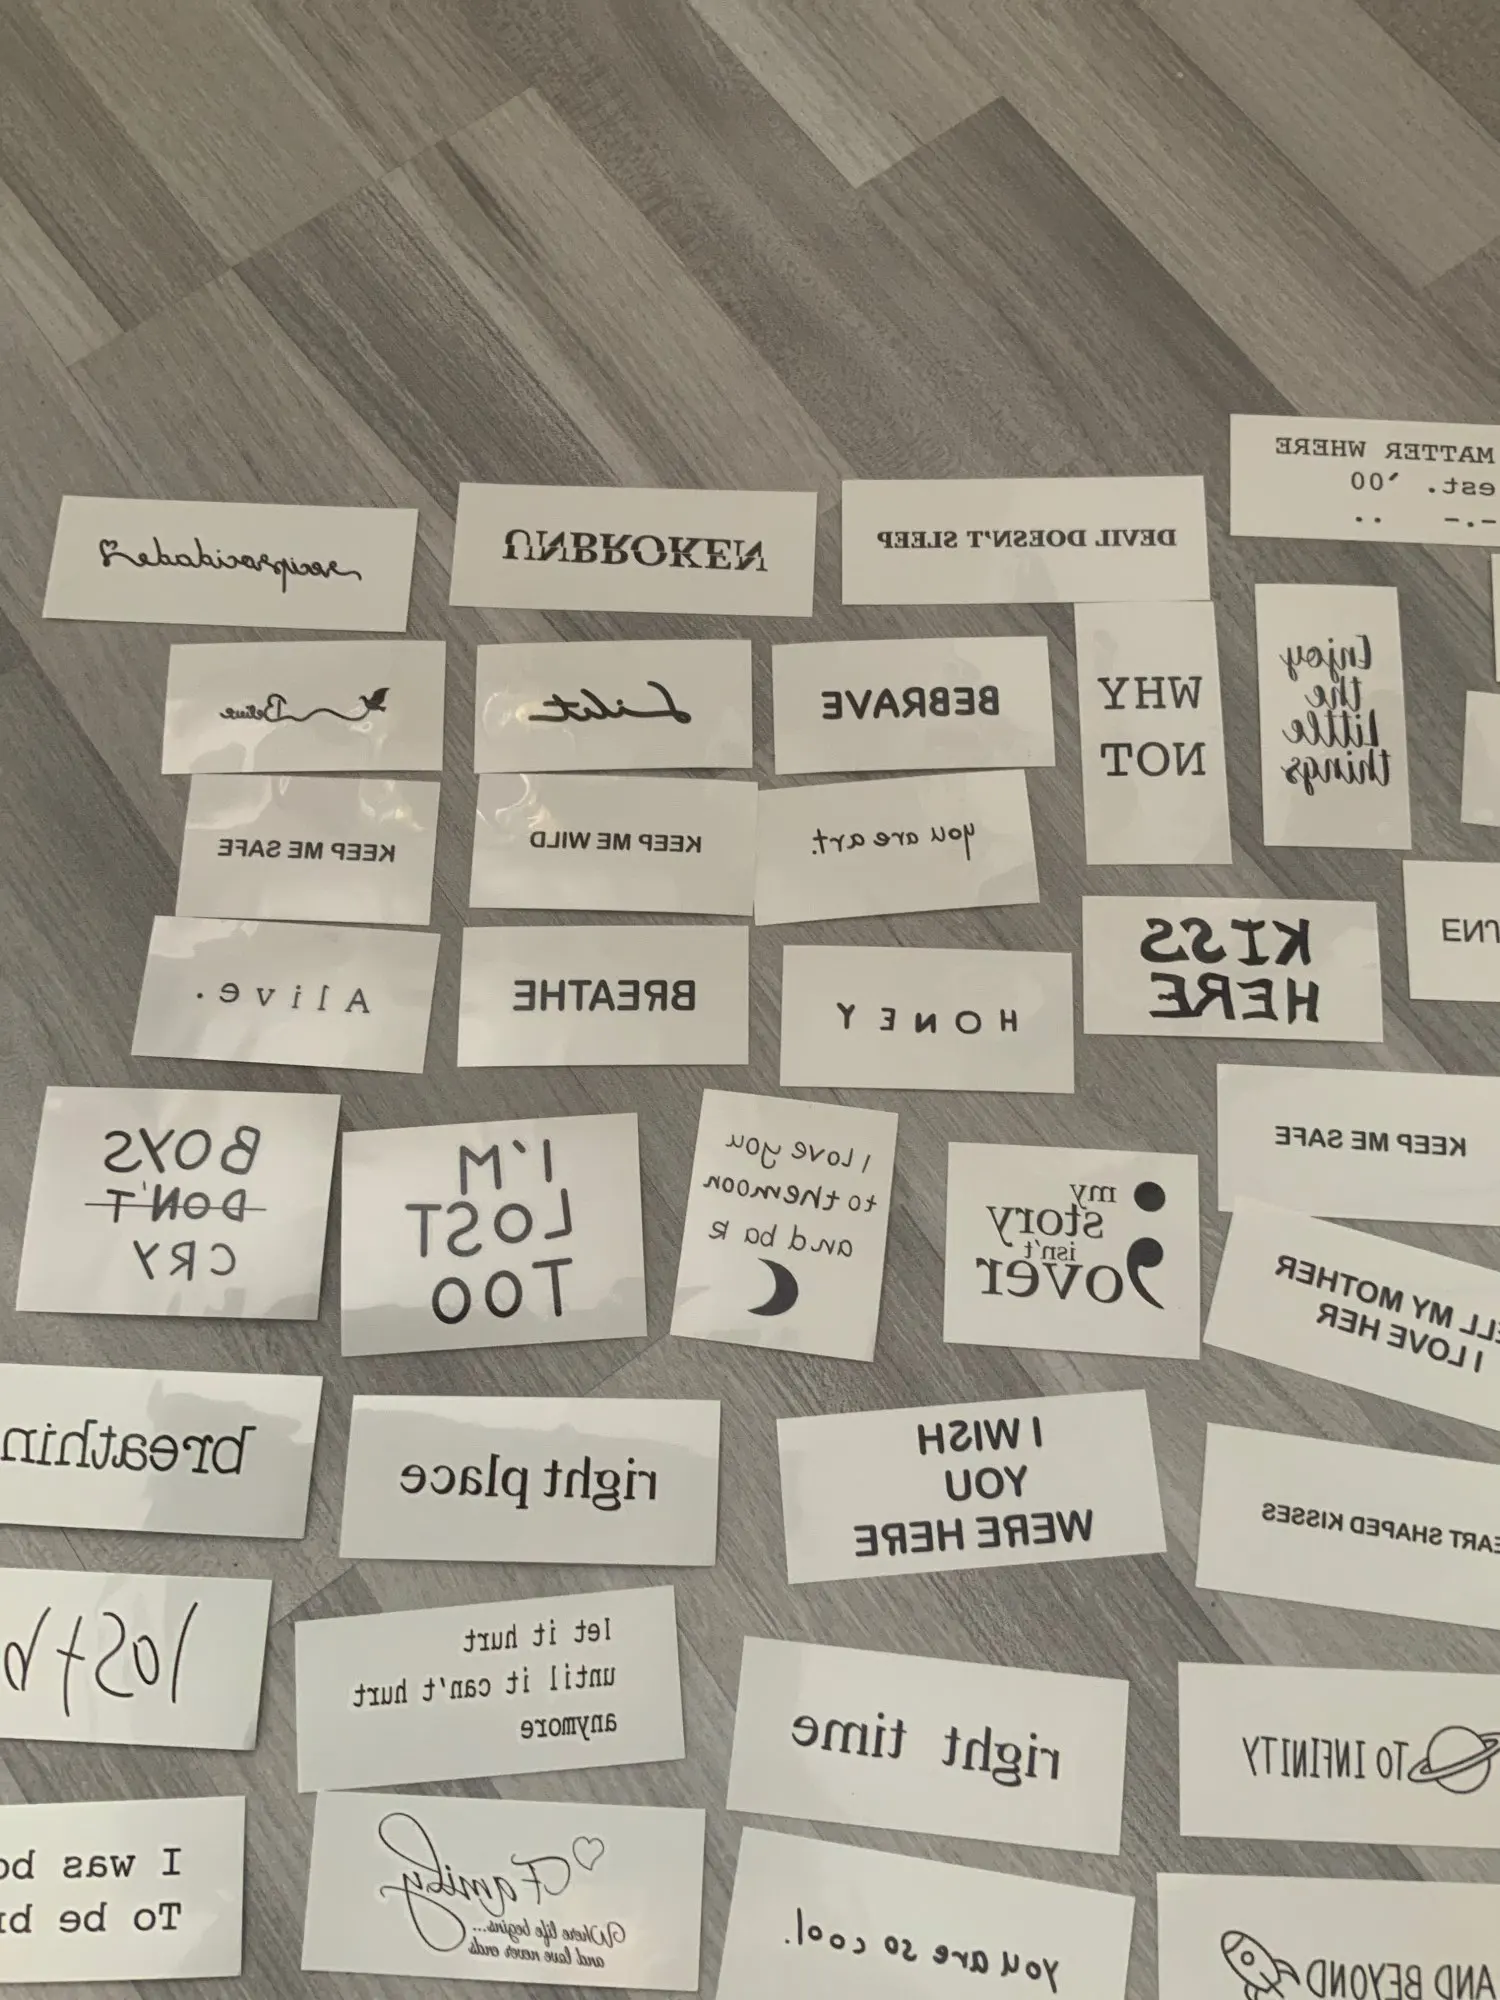 MATTER WHERE
est. '00
-.- ..
reciprocidade
UNBROKEN
DEVIL DOESN'T SLEEP
Believe
BEBRAVE
WHY
NOT
Enjoy
the
little
things
KEEP ME SAFE
KEEP ME WILD
you are art.
Alive.
BREATHE
HONEY
KISS
HERE
BOYS
DON'T
CRY
I'M
LOST
TOO
I love you
to the moon
and back
my
story
isn't
over
KEEP ME SAFE
MY MOTHER
I LOVE HER
breathin
right place
I WISH
YOU
WERE HERE
SHAPED KISSES
lost
let it hurt
until it can't hurt
anymore
right time
TO INFINITY
I was
To be
Family
Where life begins...
and love never ends
you are so cool.
AND BEYOND